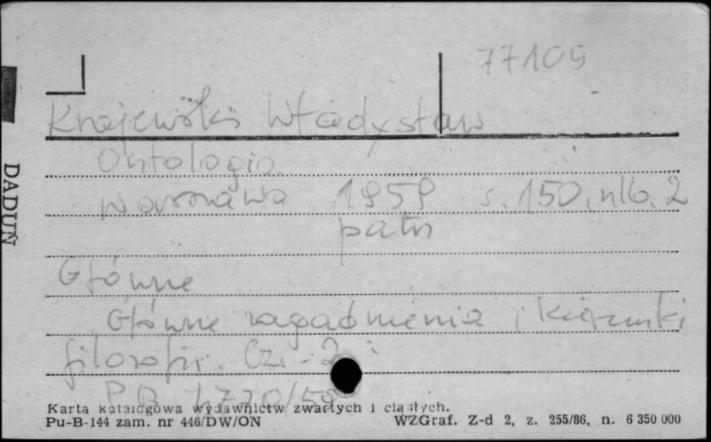 77109
Krajewski Władysław
Ontologia
Warszawa 1959 s. 150, nlb. 2
patrz
Główne
Główne zagadnienia i kierunki
filozofii. Cz. 2:
PB 7720/59
Karta katalogowa wydawnictw zwartych i ciągłych.
Pu-B-144 zam. nr 446/DW/ON WZGraf. Z-d 2, z. 255/86, n. 6 350 000
DADUŃ